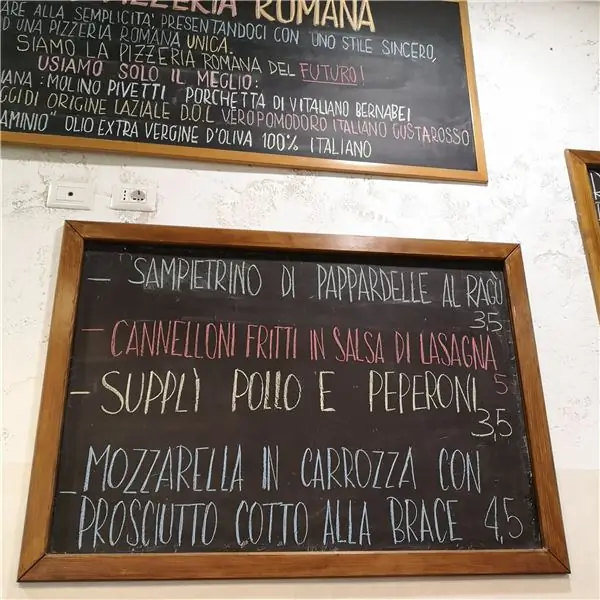 PIZZERIA ROMANA
ALLA SEMPLICITA', PRESENTANDOCI CON UNO STILE SINCERO,
UNA PIZZERIA ROMANA UNICA.
SIAMO LA PIZZERIA ROMANA DEL FUTURO!
USIAMO SOLO IL MEGLIO:
: MOLINO PIVETTI PORCHETTA DI VITALIANO BERNABEI
DI ORIGINE LAZIALE D.O.L VERO POMODORO ITALIANO GUSTAROSSO
" OLIO EXTRA VERGINE D'OLIVA 100% ITALIANO
- SAMPIETRINO DI PAPPARDELLE AL RAGÙ
3,5
- CANNELLONI FRITTI IN SALSA DI LASAGNA
5
- SUPPLÌ POLLO E PEPERONI
3,5
- MOZZARELLA IN CARROZZA CON
PROSCIUTTO COTTO ALLA BRACE 4,5